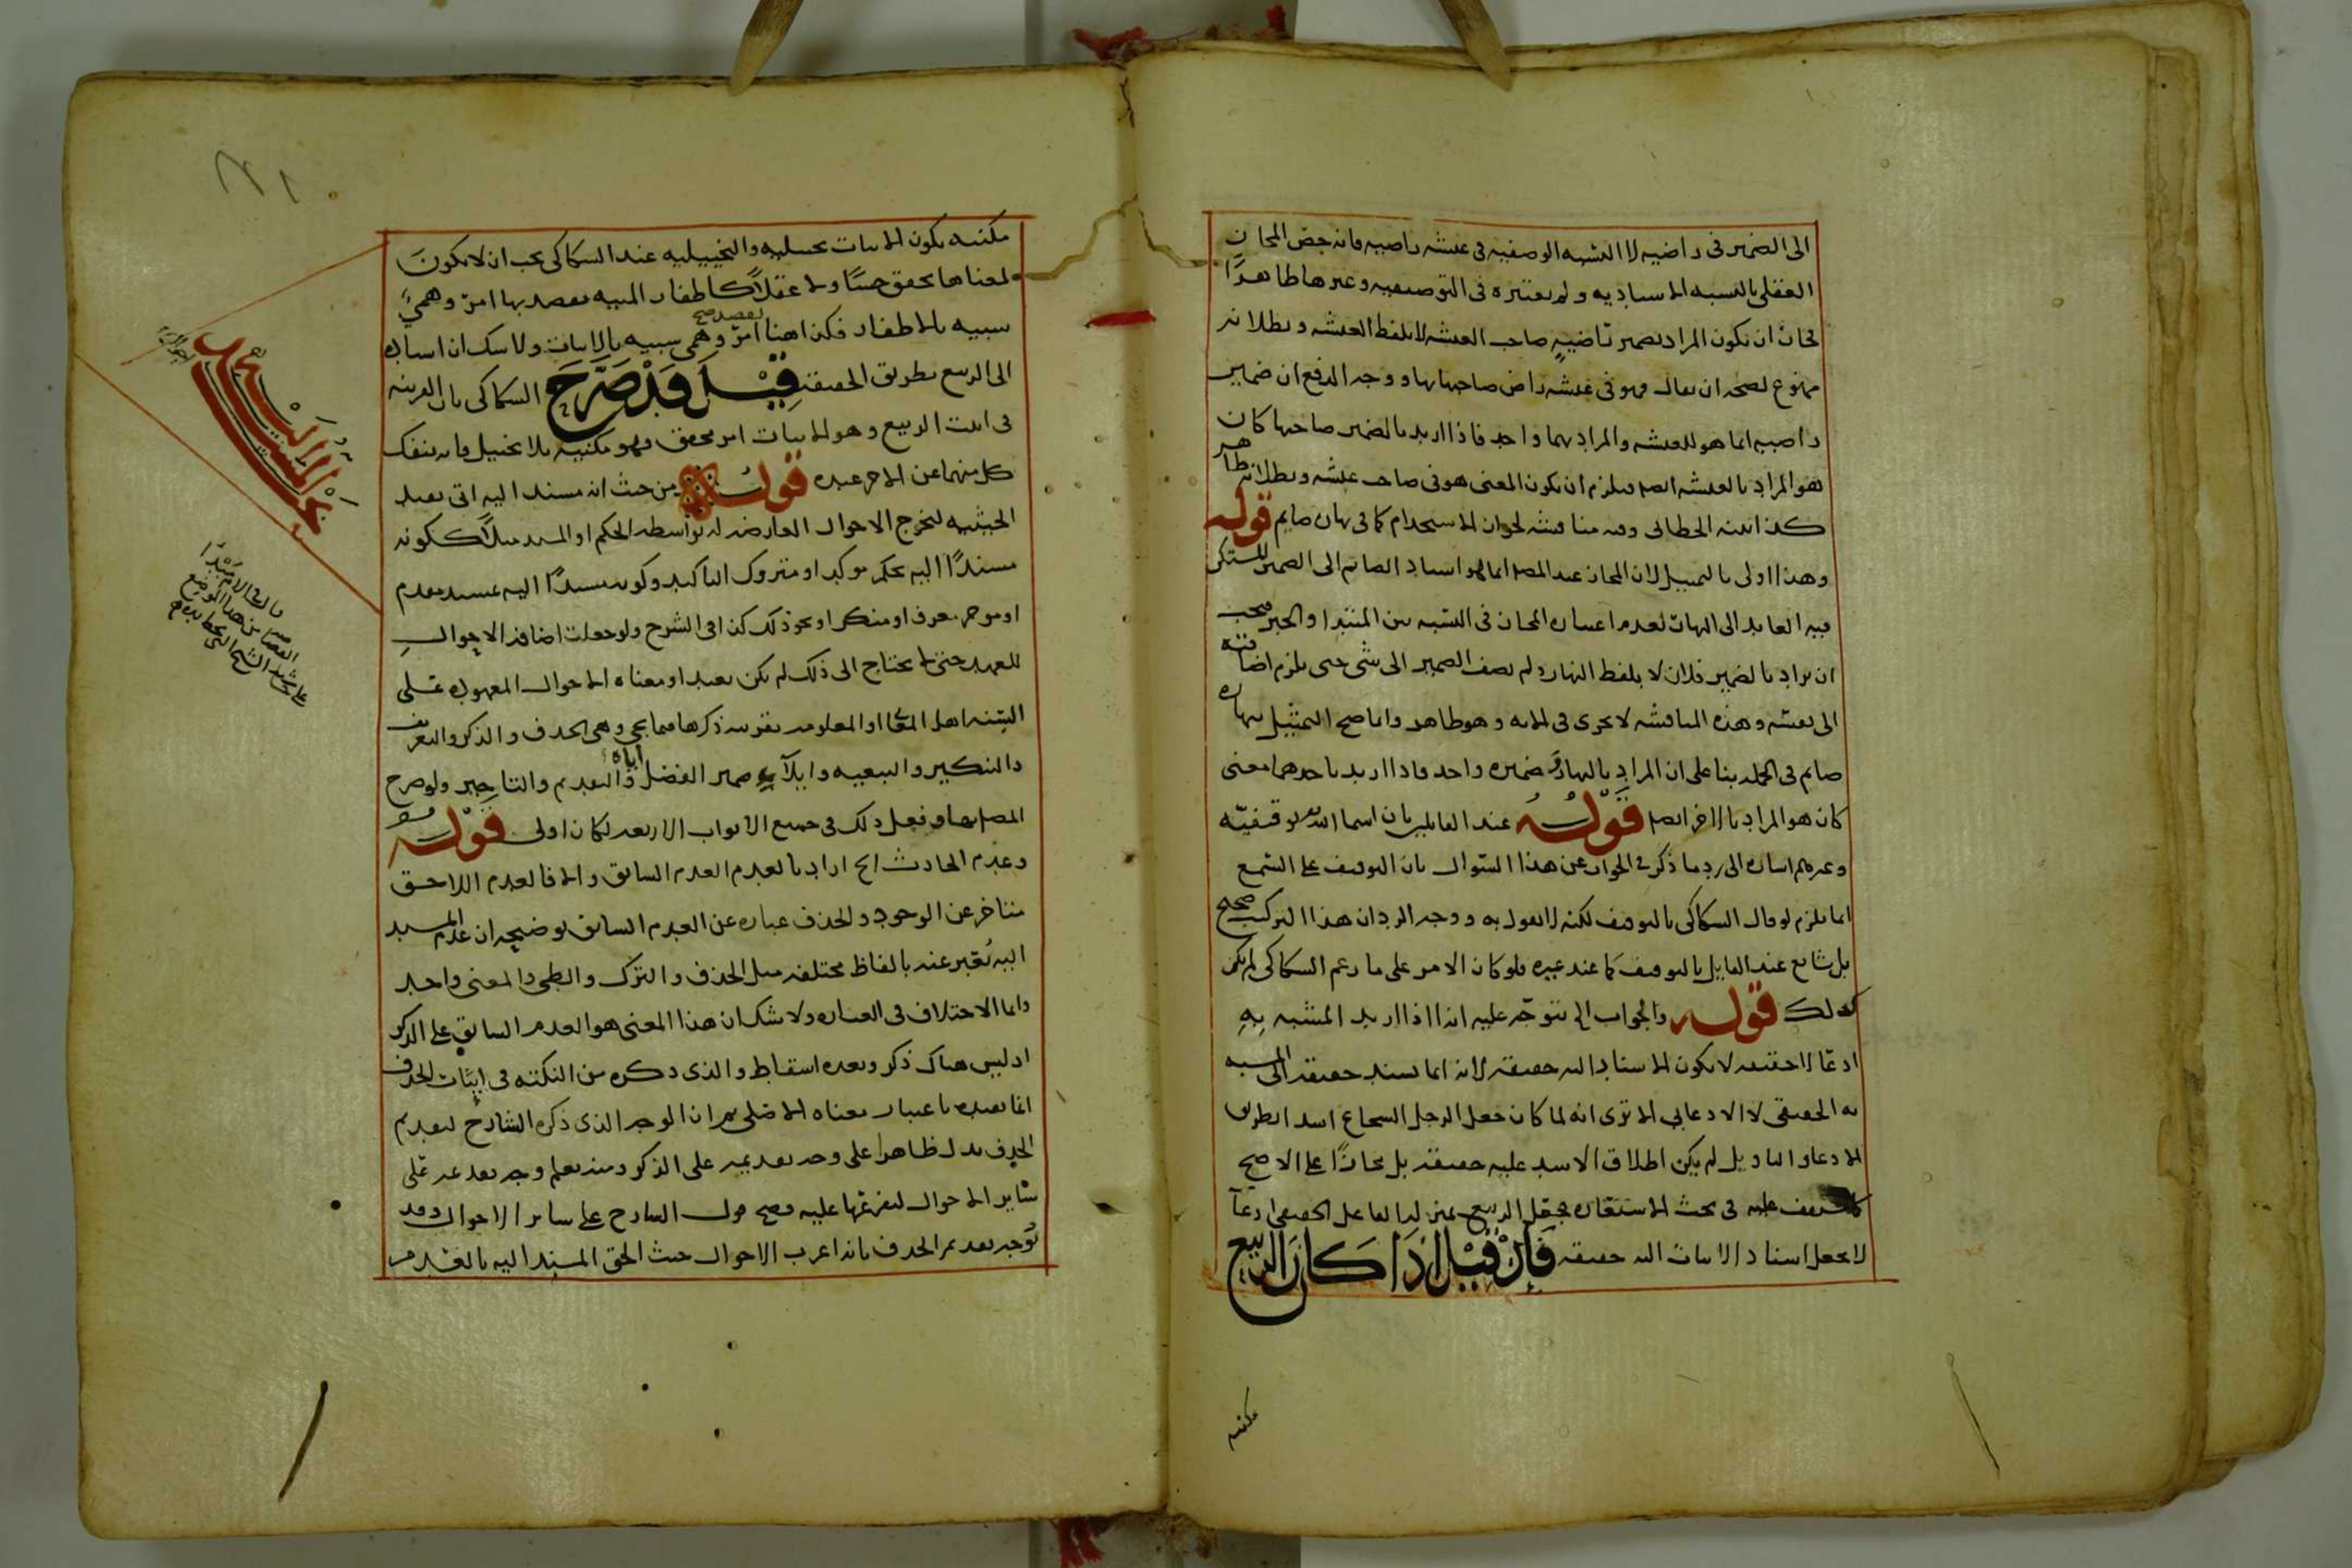 الى الضمير فى راضيه لا النسبه الوصفيه فى عيشه راضيه فانه خص المجاز
العقلى بالنسبه الاسناديه ولم يعتبره فى التوصيفيه وغيرها ظاهرا
ان يكون المراد بضمير راضية صاحب العيشه لا بلفظ العيشه وبطلانه
ممنوع لصحه ان يقال فهو فى عيشه راض صاحبها بها ووجه الدفع ان ضمير
راضيه انما هو للعيشه والمراد بهما واحد فاذا اريد بالضمير صاحبها كان
هو المراد بالعيشه ايضا فيلزم ان يكون المعنى هو فى صاحب عيشه وبطلانه ظاهر
كذا الخطائى وفيه مناقشه لجواز الاستخدام كما فى نهاره صايم قوله
وهذا اولى بالتمثيل لان المجاز عند المصـ انما هو اسناد الصايم الى الضمير المستكن
فيه العايد الى النهار لعدم اعتباره المجاز فى النسبه بين المبتدا والخبر فيجب
ان يراد بالضمير فلان لا بلفظ النهار ولم يضف الضمير الى شى حتى يلزم اضافته
الى نفسه وهذه المناقشه لا تجرى فى الايه وهو ظاهر وانما صح التمثيل بنهاره
صايم فى الجمله بنا على ان المراد بالنهار وضميره واحد فاذا اريد باحدهما معنى
كان هو المراد بالاخر ايضا قوله عند القايلين بان اسما الله توقيفيه
وغيرهم اشاره الى رد ما ذكر فى الجواب عن هذا السوال بان التوقيف على السمع
انما يلزم لو قال السكاكى بالتوقيف لكنه لا يقول به ووجه الرد ان هذا التركيب صحيح
بل شايع عند القايل بالتوقيف كما عند غيره فلو كان الامر على ما زعم السكاكى لم يكن
كذلك قوله والجواب الخ يتوجه عليه انه اذا اريد المشبه به
ادعا لا حقيقه لا يكون الاسناد اليه حقيقه لانه انما يسند حقيقه الى المشبه
به الحقيقى لا الادعايى الا ترى انه لما كان جعل الرجل الشجاع اسد ا بطريق
الادعا والتاويل لم يكن اطلاق الاسد عليه حقيقه بل مجازا على الاصح
كما ستقف عليه فى بحث الاستعاره فجعل الربيع بمنزله الفاعل الحقيقى ادعا
لا يجعل اسناد الانبات اليه حقيقه فان قيل اذا كان الربيع
مكنيه
مكنيه يكون الانبات تخييليه والتخييليه عند السكاكى يجب ان لا يكون
لمعناها تحقق حسا ولا عقلا كاظفار المنيه يقصد بها امر وهمى
شبيه بالاظفار فكذا هنا يقصد صح امر وهمى شبيه بالانبات ولا شك ان اسناده
الى الربيع بطريق الحقيقه قيل قد صرح السكاكى بان القرينه
فى انبت الربيع وهو الانبات امر محقق فهو مكنيه بلا تخييل فانه ينفك
كل منهما عن الاخر عنده قوله من حيث انه مسند اليه اتى بقيد
الحيثيه لتخرج الاحوال العارضه له بواسطه الحكم او المسند مثلا ككونه
مسندا اليه بحكم موكد او متروك التاكيد وكونه مسندا اليه بمسند مقدم
او موخر معرف او منكر او نحو ذلك كذا فى الشرح ولو جعلت اضافه الاحوال
للعهد حتى لا يحتاج الى ذلك لم يكن بعيدا ومعناه الاحوال المعهوده على
السنه اهل المعانى او المعلومه بقرينه ذكرها فيما يجى وهى الحذف والذكر والتعريف
والتنكير والتبعيه وايلاءه اياه ضمير الفصل والتقديم والتاخير ولو صرح
المصـ بها وفعل ذلك فى جميع الابواب الاربعه لكان اولى قوله
وعدم الحادث الخ اراد بالعدم العدم السابق والا فالعدم اللاحق
متاخر عن الوجود والحذف عباره عن العدم السابق توضيحه ان عدم المسند
اليه يعبر عنه بالفاظ مختلفه مثل الحذف والترك والطى والمعنى واحد
وانما الاختلاف فى العباره ولا شك ان هذا المعنى هو العدم السابق على الذكر
اذ ليس هناك ذكر وبعده اسقاط والذى ذكره من النكته فى اثبات الحذف
انما يفيده باعتبار معناه الاصلى ثم ان الوجه الذى ذكره الشارح لتقديم
الحذف يدل ظاهرا على وجه تقديمه على الذكر ومنه يعلم وجه تقديمه على
ساير الاحوال لتفرعها عليه فصح قول الشارح على ساير الاحوال وقد
توجه تقديم الحذف بانه اغرب الاحوال حيث الحق المسند اليه بالعدم